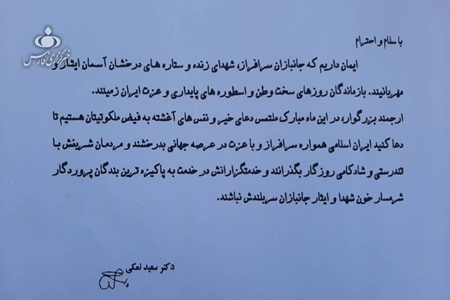 خبرگزاری فارس
با سلام و احترام
ایمان داریم که جانبازان سرافراز، شهدای زنده و ستاره های درخشان آسمان ایثار و
مهربانیند. بازماندگان روزهای سخت وطن و اسطوره های پایداری و عزت ایران زمینند.
ارجمند بزرگوار، در این ماه مبارک ملتمس دعای خیر و نفس های آغشته به فیض ملکوتیتان هستیم تا
دعا کنید ایران اسلامی همواره سرافراز و با عزت در عرصه جهانی بدرخشند و مردمان شریفش با
تندرستی و شادکامی روزگار بگذرانند و خدمتگزارانش در خدمت به پاکیزه ترین بندگان پروردگار
شرمسار خون شهدا و ایثار جانبازان سربلندش نباشند.
دکتر سعید نمکی